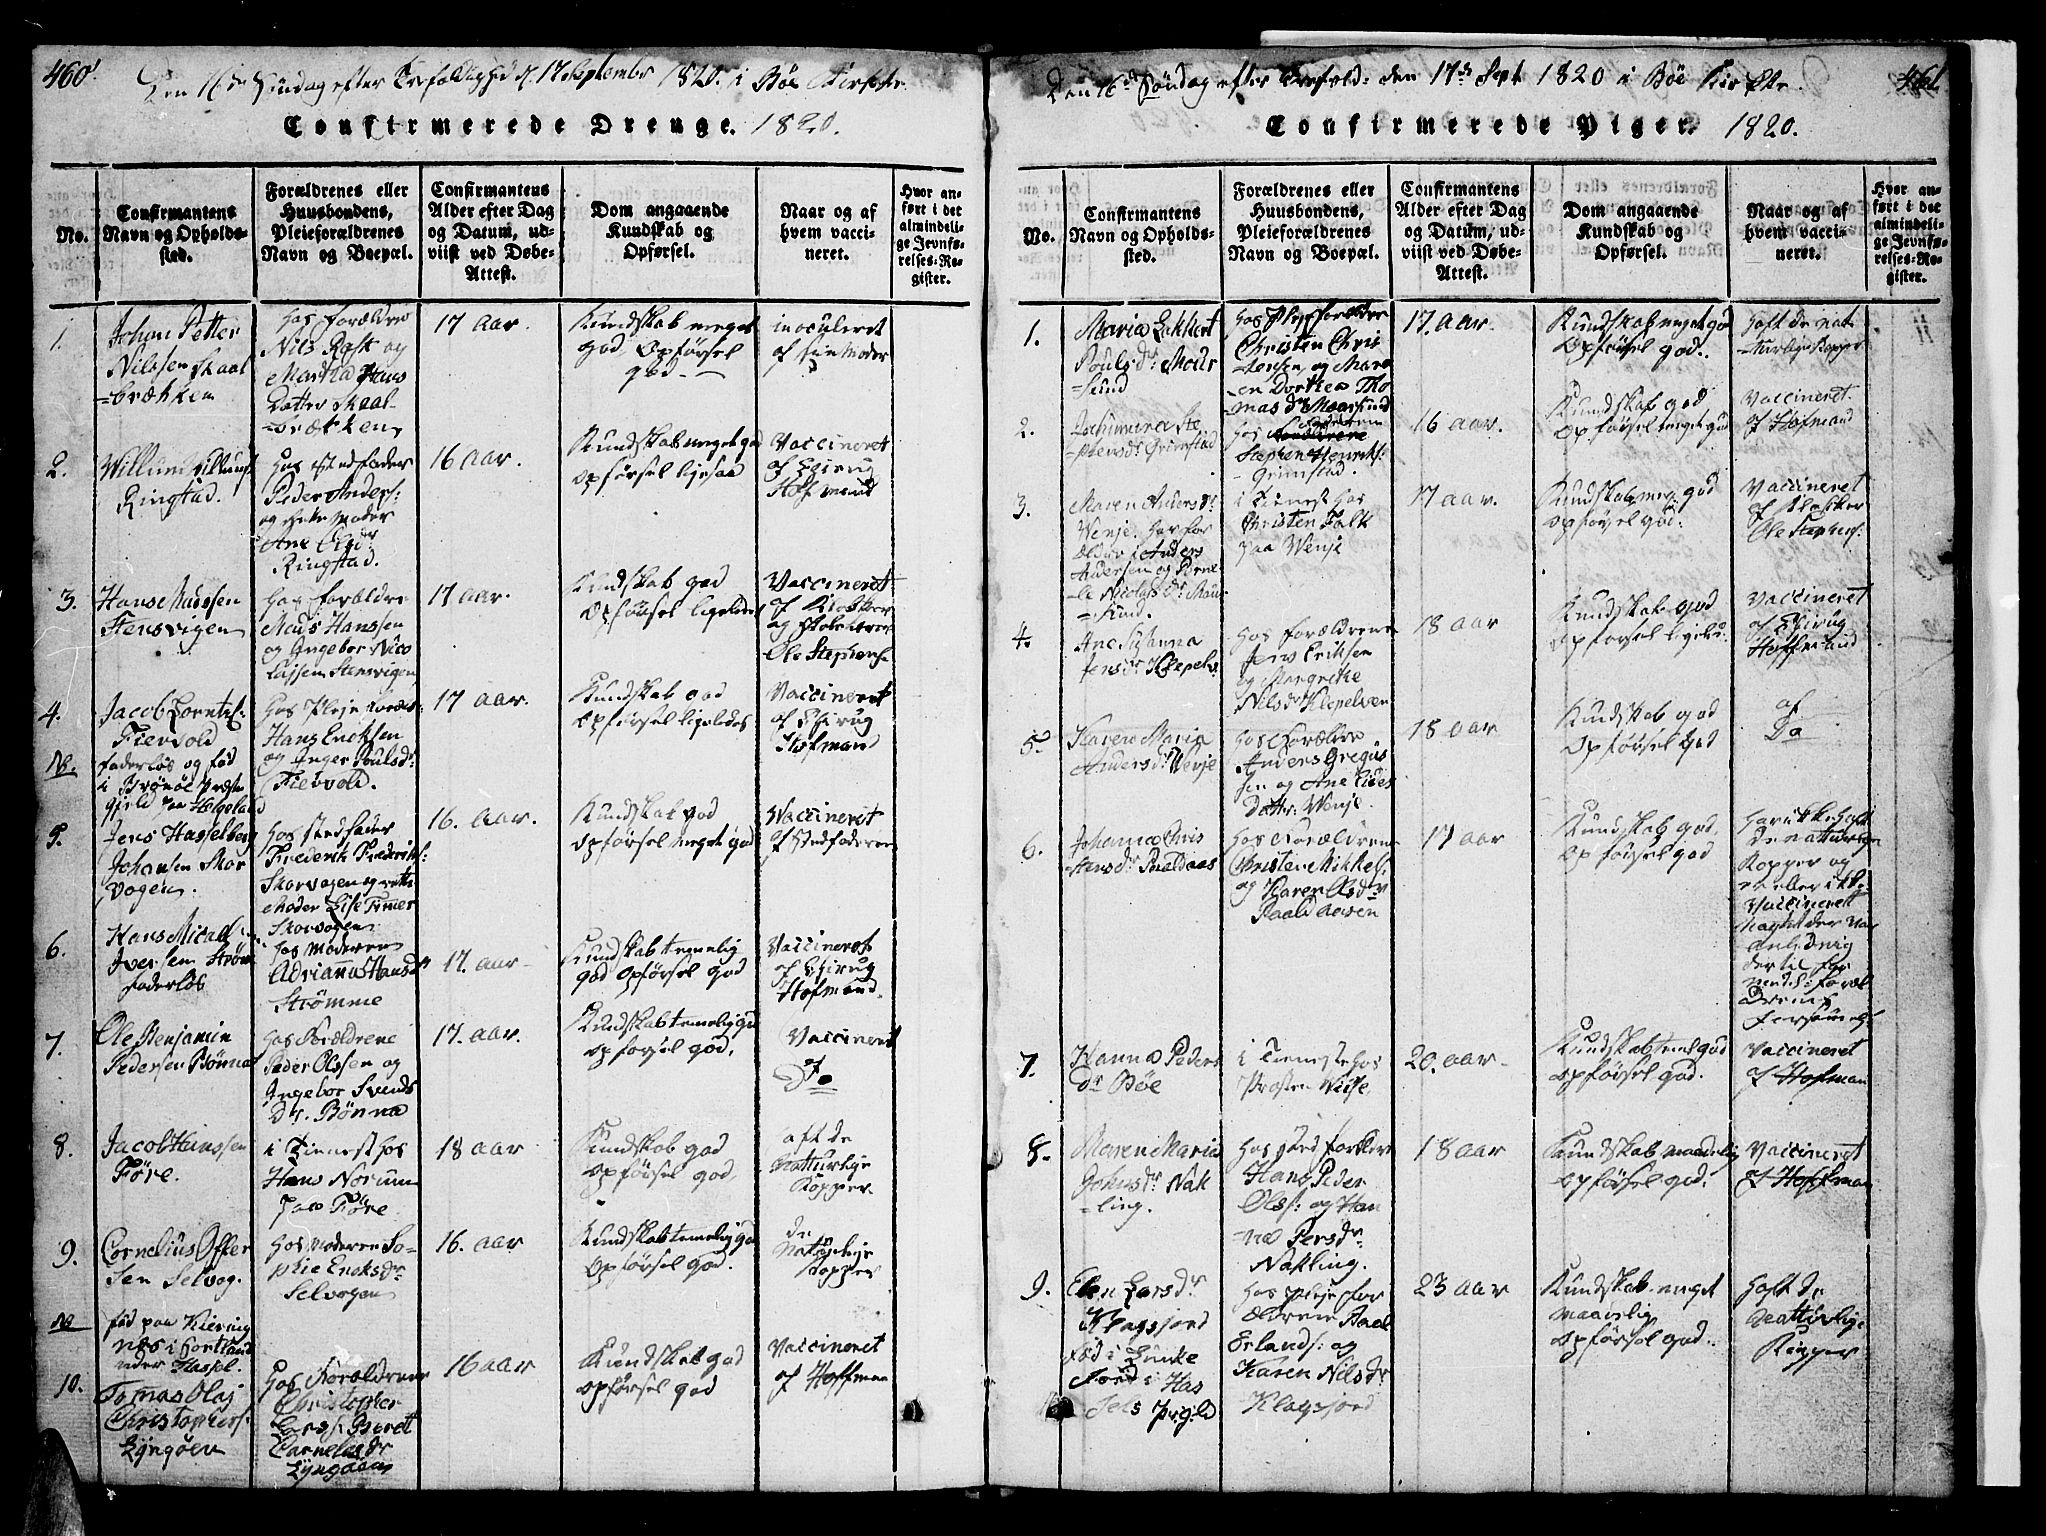 460.
Den 16de Søndag efter Trefoldighd d. 17 Septembr 1820. i Böe Kirche
Confirmerede Drenge. 1820.
No.
Confirmantens
Navn og Opholds-
sted.
Forældrenes eller
Huusbondens,
Pleieforældrenes
Navn og Boepæl.
Confirmantens
Alder efter Dag
og Datum, ud-
viist ved Døbe-
Attest.
Dom angaaende
Kundskab og
Opførsel.
Naar og af
hvem vacci-
neret.
Hvor an-
ført i det
almindeli-
ge Jevnfø-
relses-Re-
gister.
1.
Johan Petter
Nilssen Skaal
=brækken
hos forældre
Nils Rask og
Martha Hans
Datter Skaal
=brækken
17 Aar.
Kundskab meget
god, Opførsel
god
inoculeret
af sin Moder
2.
Willum Willums:
Ringstad.
hos stedfader
Peder Anders:
og rette Moder
Ane Elsdr
Ringstad.
16 Aar.
Kundskab meget god
opførsel ligesaa
Vaccineret
af Chirug
Hofmand
3.
Hans Madssen
Stensvigen
hos forældre
Mads Hanssen
og Ingebor Nico
laisen Stensvigen
17 aar.
Kundskab god
Opførsel ligeledes
Vaccineret
af Klokker
og Skolelærer
Ole Stephens:
4.
Jacob Lornts:
Fievold
NB.
faderløs og fød
i Brønøe Præste
gjeld paa Helgeland
hos Pleje foræl:
Hans Ericksen
og Inger Poulsdr
Fievold.
17 aar.
Kundskab god
opførsel ligeledes
Vaccineret
af Chirug
Hofmand
5.
Jens Hasselberg
Johansen Skor
vogen.
hos stedfader
Frederik Frederiks:
Skorvogen og rette
Moder Else Timer
Skorvogen
16. aar.
Kundskab god
opførsel meget god
Vaccineret
af Stedfaderen
6.
Hans Micael
Iversen Strøm
faderløs
hos Moderen
Adrianna Hansdr
Strømme
17. aar
Kundskab temelig
god opførsel god
Vaccineret
af Chirug
Hofmand.
7.
Ole Benjamin
Pedersen Bønna
hos Forældrene
Peder Olssen og
Ingebor Svends
Dr. Bönna
17. aar.
Kundskab temelig god
opførsel god.
Vaccineret
af
Do
8.
Jacob Hanssen
Føre.
i Tienest hos
Hans Norum
paa Føre.
18 aar
Kundskab god
opførsel god.
aft de
Natturlije
Kopper
9.
Cornelius Offer
sen Selvog.
NB
fød paa Kiering
næs i Sortland
under Hassel.
hos Moderen So-
phie Ericksdr
Selvogen
16. aar
Kundskab temelig god
opførsel god.
de
Naturlije
Kopper
10.
Tomas Olaj
Christophers:
Lyngøen
hos Forældrene
Christopher
Larss: Berett
Cornelesdr
Lyngøen
16 aar
Kundskab god
opførsel god
Vaccineret
af Hoffman
461.
Den 16de Söndag efter Trefold: den 17de Sept 1820 i Böe Kirke
Confirmerede Piger. 1820.
No.
Confirmantens
Navn og Opholds-
sted.
Forældrenes eller
Huusbondens,
Pleieforældrenes
Navn og Boepæl.
Confirmantens
Alder efter Dag
og Datum, ud-
viist ved Døbe-
Attest.
Dom angaaende
Kundskab og
Opførsel.
Naar og af
hvem vacci-
neret.
Hvor an-
ført i det
almindeli-
ge Jevnfø-
relses-Re-
gister.
1.
Maria Lekkert
Poulsdr Maur
=sund
hos Plejeforældre
Christen Chris
=tensen og Mar
en Dorthea Tho
masdr Maarsund
17. aar.
Kundskab meget god
Opførsel god.
haft de nat
=turlige Kopper
2.
Jochimina Ste
phensdr Grimstad
hos
Stephen Henriks:
Grimstad.
16 aar.
Kundskab god
opførsel meget god
Vaccineret.
af Hofmand
3.
Maren Andersdr
Wenje. har for
ældre i Anders
Andersen og Perne
le Nicolajsdr Maur
=sund.
i Tienest hos
Christen Falk
paa Wenje
17 aar.
Kundskab meg god
opførsel god.
Vaccineret
af Klokker
Ole Stephens:
4.
Ane Susanna
Jensdr Klepelv
hos forældrene
Jens Eriksen
og Margrethe
Nilsdr Klepelven
18 aar
Kundskab god
opførsel ligeled.
Vaccineret
af Chirug
Hoffmand
5.
Karen Maria
Andersdr Wenje
hos Forældre
Anders Gregus
sen og Ane Eides
Datter Wenje.
18 aar
Kundskab god
Opførsel god
af
Do
6.
Johanna Chris
tensdr Paaldaas
hos Forældrene
Christen Mikkels:
og Karen Olsdr
Paaldaasen
17 aar
Kundskab god.
opførsel god
har ikke haft
de natturlige
Kopper og
er eller ikke
Vaccineret
7.
Hanna Peders
Dr Böe
i Tieneste hos
Prosten Wisse
20. aar
Kundskab temel god
opførsel god.
Vaccineret
af Hofman
8.
Maren Maria
Johnsdr Nak
=ling.
hos sted forælder
Hans Peder
Olss: og Han
=na Persdr
Nakling.
18 aar
Kundskab maadelig
opførsel god.
Vaccineret
af Hoffman
9.
Elen Larsdr
Klagsjord
fød i Lunke
fiord i Has
sels Prgjld
hos pleje for
ældrene Paal
Erlands: og
Karen Nilsdr
Klagsjord
23 aar
Kundskab meget
maadelig
opførsel god.
haft de
natturlige
Kopper